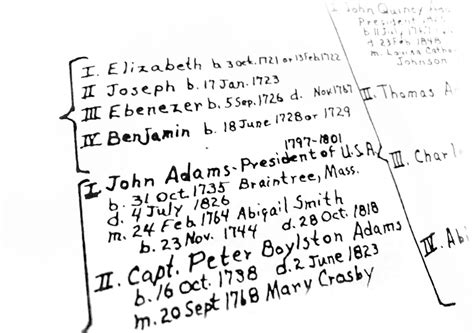 I. Elizabeth b 3 oct. 1721 or 13 Feb. 1722
II Joseph b. 17 Jan. 1723
III Ebenezer b. 5 Sep. 1726 d. Nov. 1767
IV Benjamin b. 18 June 1728 or 1729
1797-1801
I. John Adams-President of U.S.A.
b. 31 Oct. 1735 Braintree, Mass.
d. 4 July 1826
m. 24 Feb. 1764 Abigail Smith
b. 23 Nov. 1744 d. 28 Oct. 1818
II. Capt. Peter Boylston Adams
b. 16 Oct. 1738 d. 2 June 1823
m. 20 Sept 1768 Mary Crosby
I John Quincy
President
b 11 July 1767
d. 23 Feb 1848
m. Louisa Cath
Johnson
II. Thomas A
III. Charl
IV. Abi